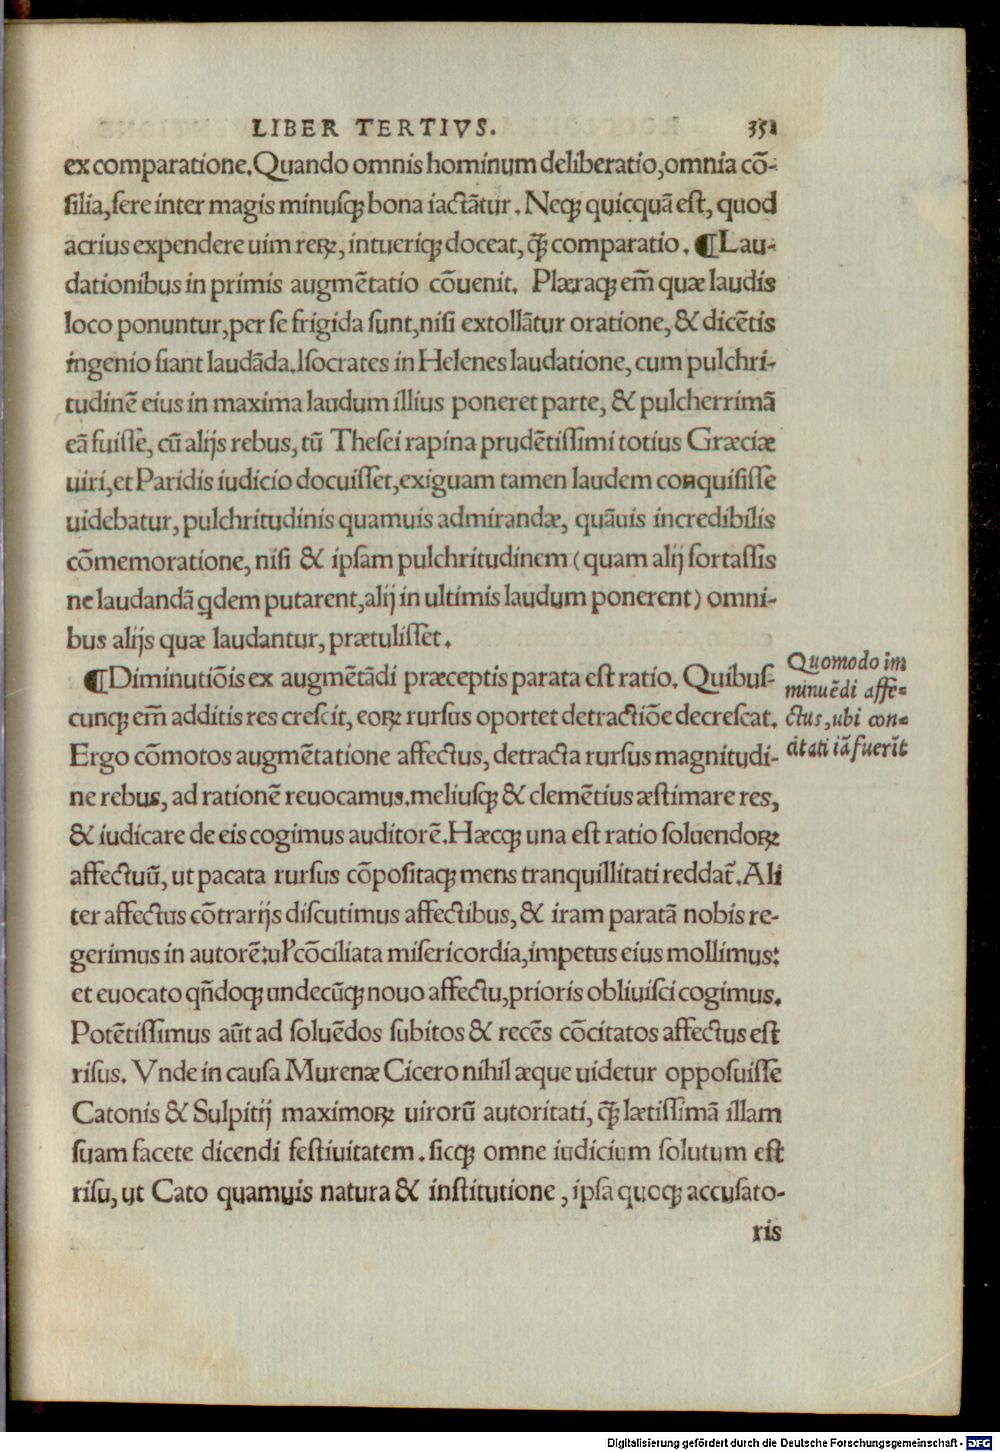 LIBER TERTIVS. 351
ex comparatione. Quando omnis hominum deliberatio, omnia cõ-
silia, fere inter magis minusq; bona iactãtur. Neq; quicquã est, quod
acrius expendere uim reꝝ, intueriq; doceat, q̃ꝫ comparatio. ¶Lau-
dationibus in primis augmẽtatio cõuenit. Plæraq; em̃ quæ laudis
loco ponuntur, per se frigida sunt, nisi extollãtur oratione, & dicẽtis
ingenio fiant laudãda. Isocrates in Helenes laudatione, cum pulchri-
tudinẽ eius in maxima laudum illius poneret parte, & pulcherrimã
eã fuisse, cũ alijs rebus, tũ Thesei rapina prudẽtissimi totius Græciæ
uiri, et Paridis iudicio docuisset, exiguam tamen laudem conquisisse
uidebatur, pulchritudinis quamuis admirandæ, quãuis incredibilis
cõmemoratione, nisi & ipsam pulchritudinem (quam alij fortassis
ne laudandã qdem putarent, alij in ultimis laudum ponerent) omni-
bus alijs quæ laudantur, prætulisset.
¶Diminutiõis ex augmẽtãdi præceptis parata est ratio. Quibus-
cunq; em̃ additis res crescit, eoꝝ rursus oportet detractiõe decrescat.
Ergo cõmotos augmẽtatione affectus, detracta rursus magnitudi-
ne rebus, ad rationẽ reuocamus. meliusq; & clemẽtius æstimare res,
& iudicare de eis cogimus auditorẽ. Hæcq; una est ratio soluendoꝝ
affectuũ, ut pacata rursus cõpositaq; mens tranquillitati reddat̃. Ali
ter affectus cõtrarijs discutimus affectibus, & iram paratã nobis re-
gerimus in autorẽ: uƚ cõciliata misericordia, impetus eius mollimus:
et euocato qñdoq; undecũq; nouo affectu, prioris obliuisci cogimus.
Potẽtissimus aũt ad soluẽdos subitos & recẽs cõcitatos affectus est
risus. Vnde in causa Murenæ Cicero nihil æque uidetur opposuisse
Catonis & Sulpitij maximoꝝ uirorũ autoritati, q̃ꝫ lætissimã illam
suam facete dicendi festiuitatem. sicq; omne iudicium solutum est
risu, ut Cato quamuis natura & institutione, ipsa quoq; accusato-
ris
Quomodo im
minuẽdi affe-
ctus, ubi con-
citati iã fuerĩt
Digitalisierung gefördert durch die Deutsche Forschungsgemeinschaft - DFG